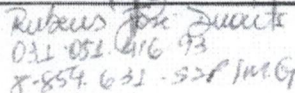 Rubens José Duarte
031.051.416.93
X-854.631-SSP/M.G